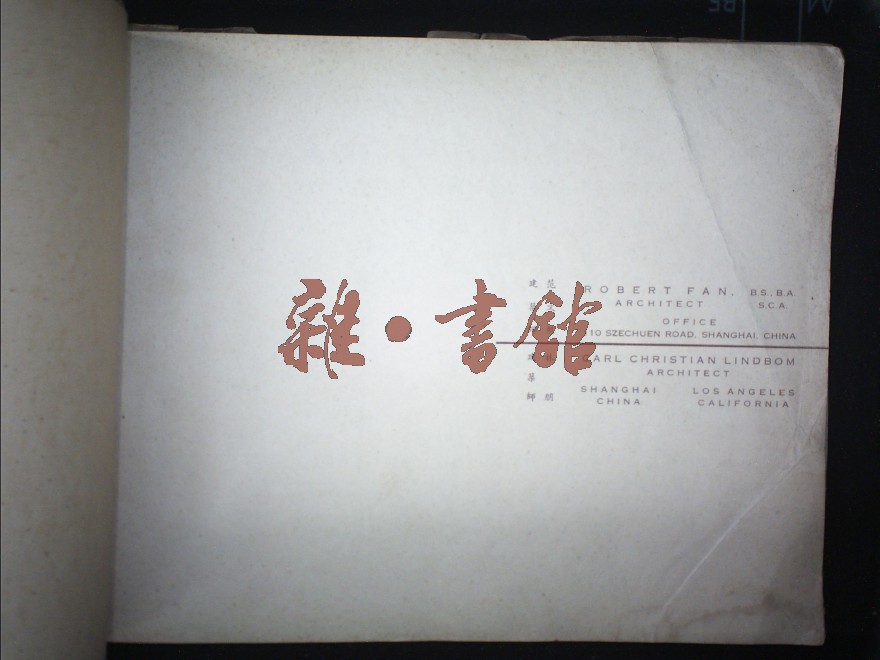 雜·書館
ROBERT FAN, B.S. B.A.
ARCHITECT S.C.A.
OFFICE
10 SZECHUEN ROAD, SHANGHAI, CHINA
CARL CHRISTIAN LINDBOM
ARCHITECT
SHANGHAI LOS ANGELES
CHINA CALIFORNIA
建 范
師 朋